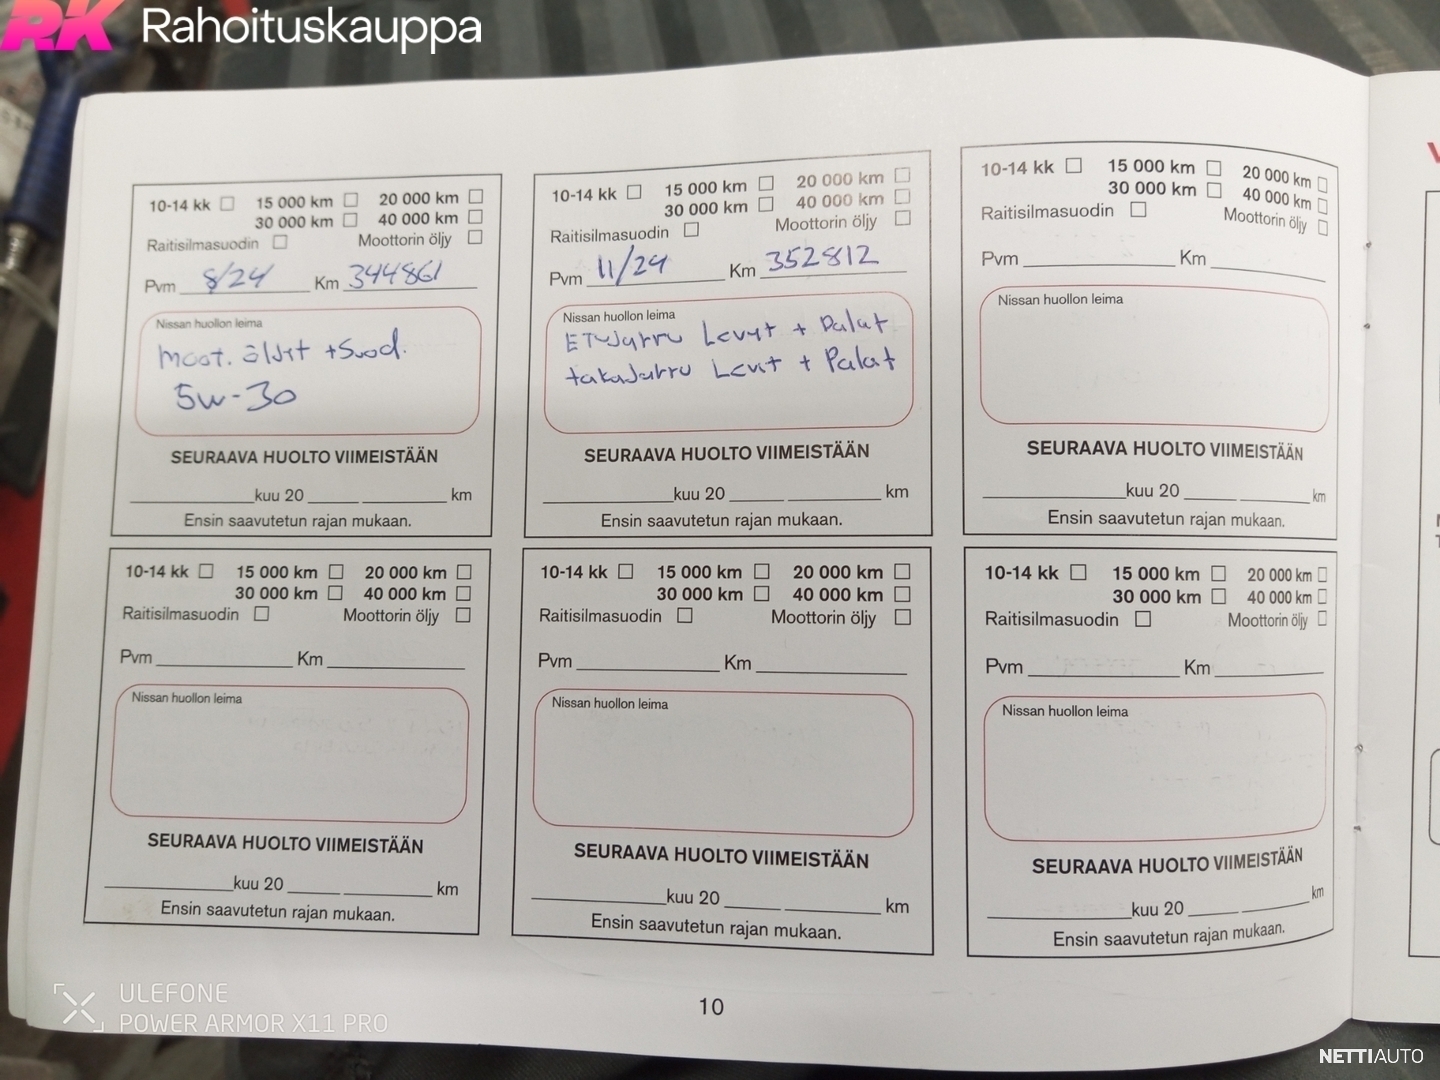 RK Rahoituskauppa
10-14 kk 15 000 km 20 000 km
30 000 km 40 000 km
Raitisilmasuodin Moottorin öljy
Pvm 8/24 Km 344861
Nissan huollon leima
Moot. öljyt + Suod.
5W-30
SEURAAVA HUOLTO VIIMEISTÄÄN
kuu 20 km
Ensin saavutetun rajan mukaan.
10-14 kk 15 000 km 20 000 km
30 000 km 40 000 km
Raitisilmasuodin Moottorin öljy
Pvm 11/24 Km 352812
Nissan huollon leima
Etujarru Levyt + Palat
takajarru Levit + Palat
SEURAAVA HUOLTO VIIMEISTÄÄN
kuu 20 km
Ensin saavutetun rajan mukaan.
10-14 kk 15 000 km 20 000 km
30 000 km 40 000 km
Raitisilmasuodin Moottorin öljy
Pvm Km
Nissan huollon leima
SEURAAVA HUOLTO VIIMEISTÄÄN
kuu 20 km
Ensin saavutetun rajan mukaan.
10-14 kk 15 000 km 20 000 km
30 000 km 40 000 km
Raitisilmasuodin Moottorin öljy
Pvm Km
Nissan huollon leima
SEURAAVA HUOLTO VIIMEISTÄÄN
kuu 20 km
Ensin saavutetun rajan mukaan.
10-14 kk 15 000 km 20 000 km
30 000 km 40 000 km
Raitisilmasuodin Moottorin öljy
Pvm Km
Nissan huollon leima
SEURAAVA HUOLTO VIIMEISTÄÄN
kuu 20 km
Ensin saavutetun rajan mukaan.
10-14 kk 15 000 km 20 000 km
30 000 km 40 000 km
Raitisilmasuodin Moottorin öljy
Pvm Km
Nissan huollon leima
SEURAAVA HUOLTO VIIMEISTÄÄN
kuu 20 km
Ensin saavutetun rajan mukaan.
10
ULEFONE
POWER ARMOR X11 PRO
NETTIAUTO